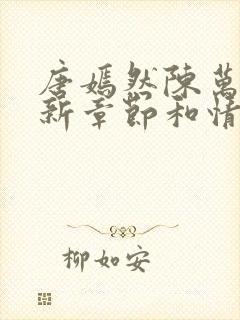 唐嫣然陳萬
新章節和情
柳如安